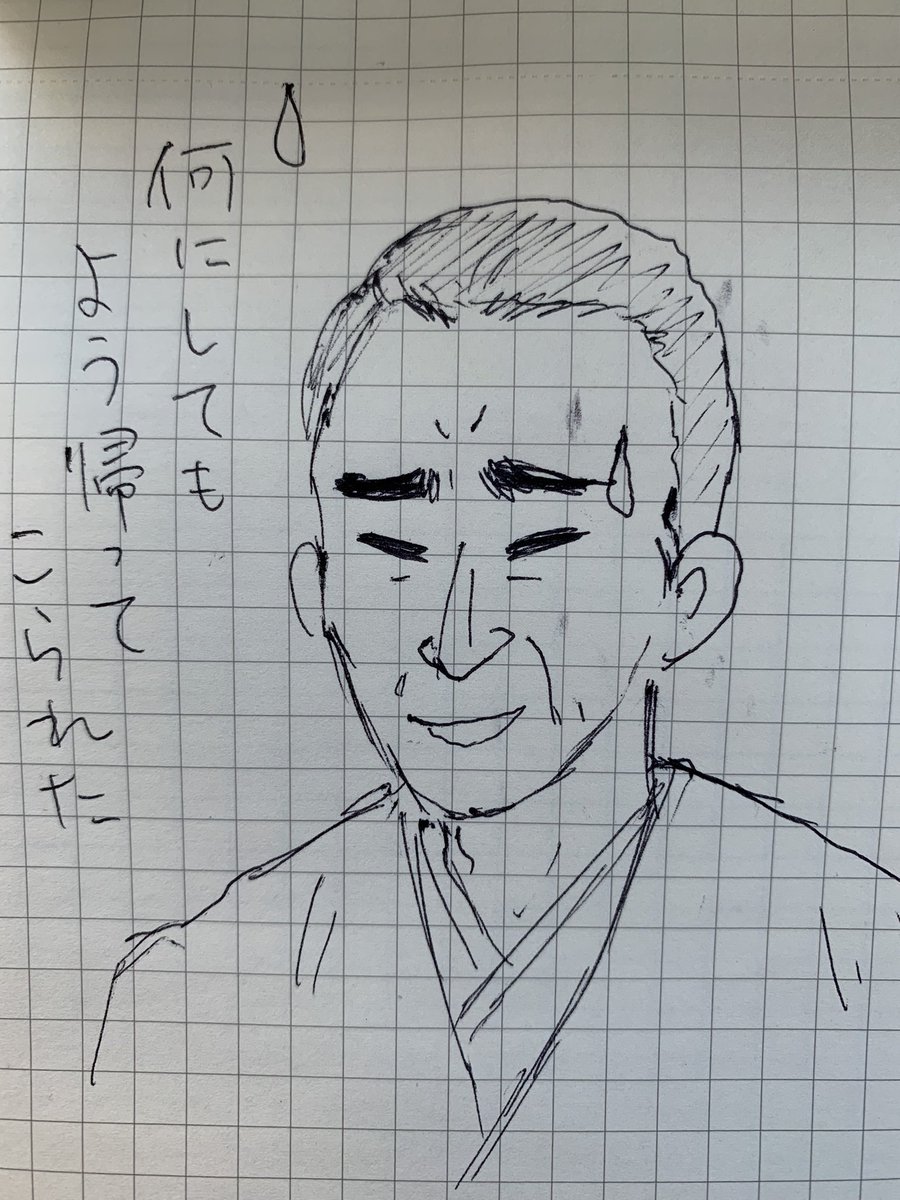 何にしても
よう帰って
こられた